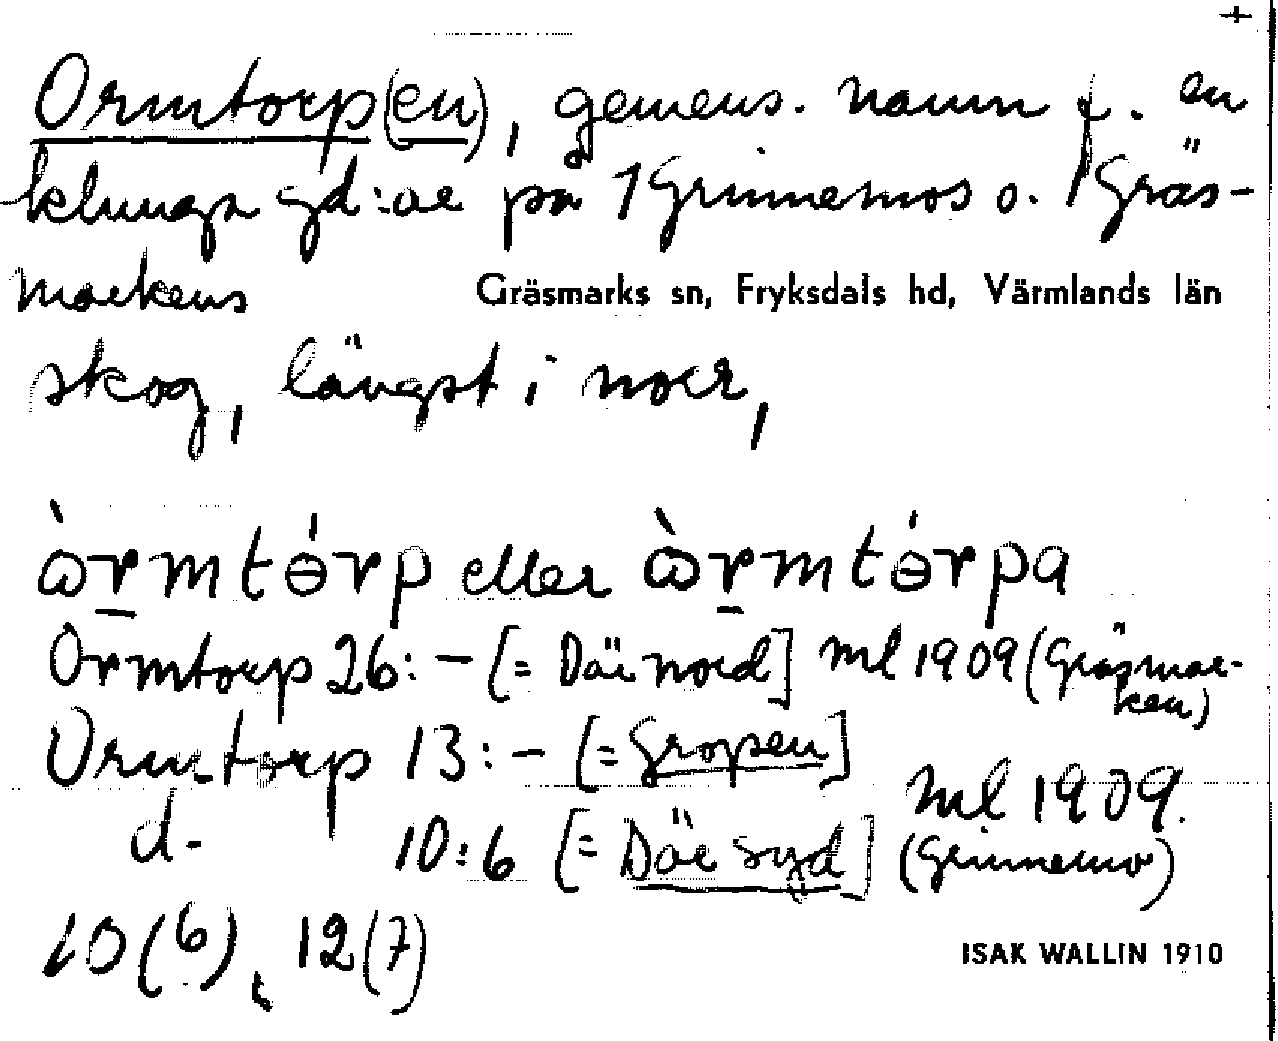 +
Ormtorp(en), gemens. namn f. en
klunga gd:ar på 1 Grinnemos o. 1 Gräs-
markens Gräsmarks sn, Fryksdals hd, Värmlands län
skog, längst i norr,
ὼr̲mtɵ́rp eller ὼr̲mtɵ́rpa
Ormtorp 26:- [= Där nord] ml 1909 (Gräsmar-
ken)
Ormtorp 13:- [= Gropen]
d- 10:6 [= Där syd] ml 1909.
(Grinnemo)
10(6), 12(7)
ISAK WALLIN 1910